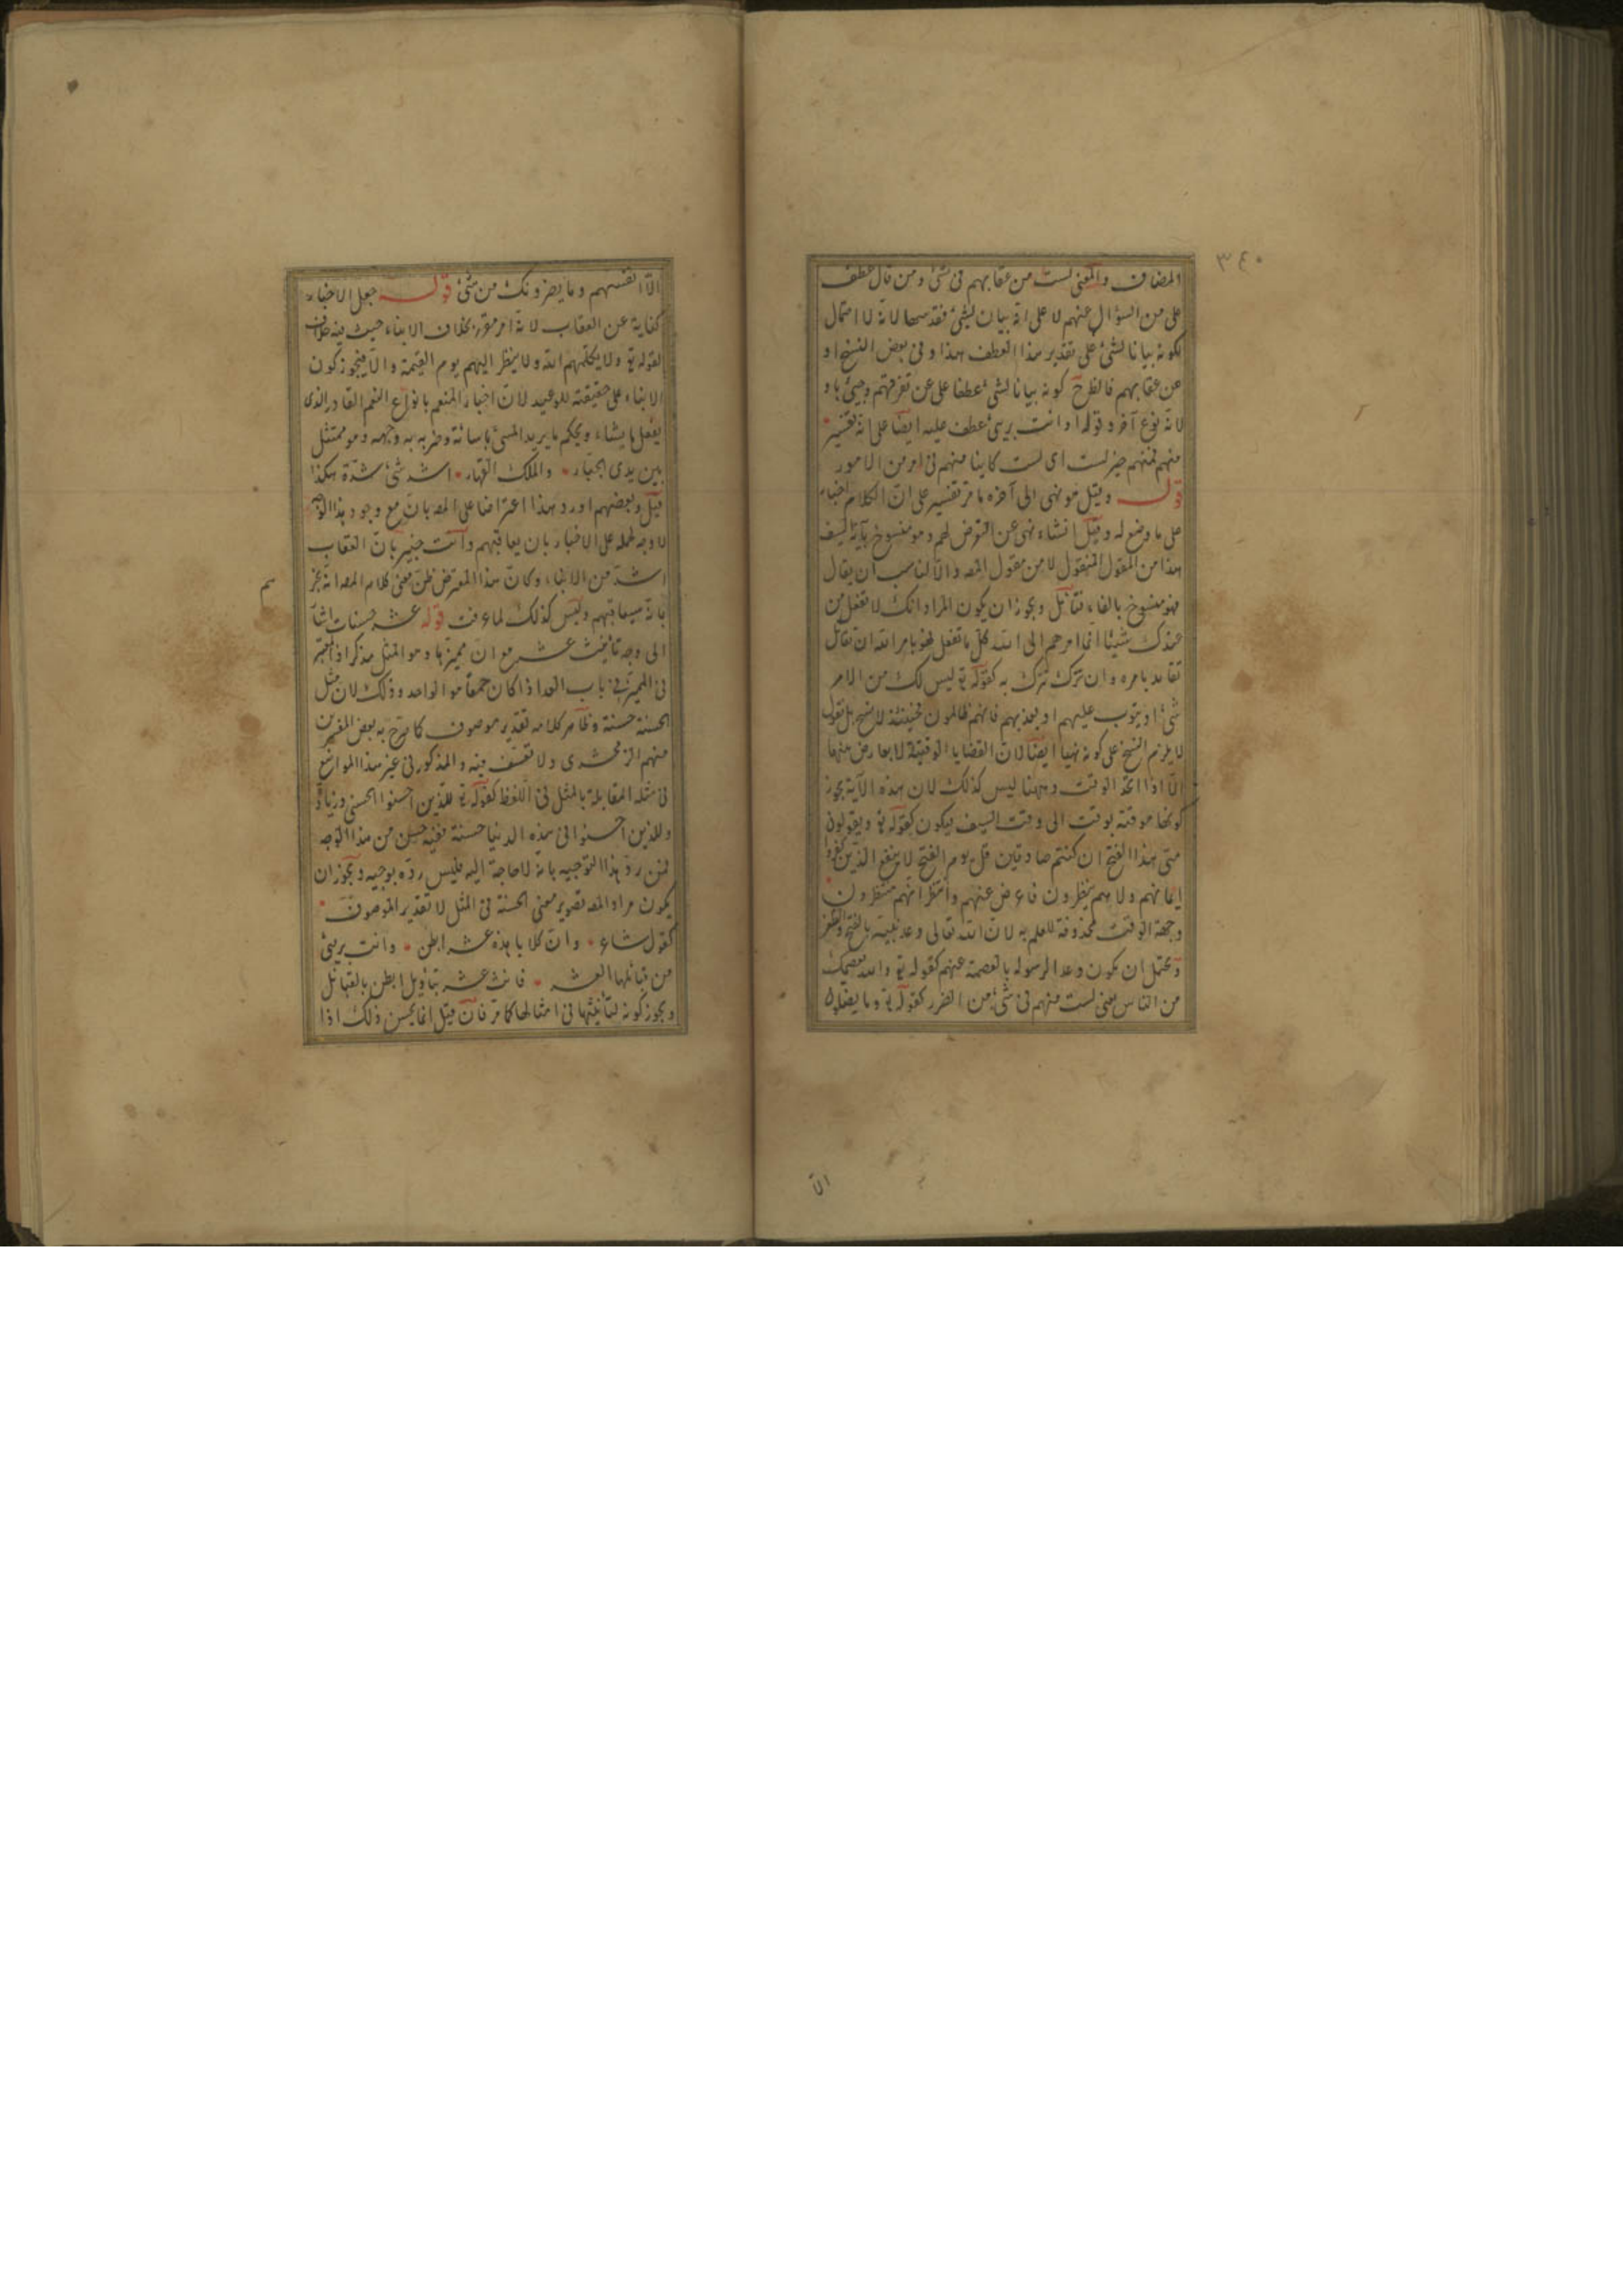 ٣٤٠
المضاف والمعنى لست من عقابهم فى شئ ومن قال عطف
على من السؤال عنهم لا على انه بيان لشئ فقد سها لانه لا احتمال
لكونه بيانا لشئ على تقدير هذا العطف هذا وفى بعض النسخ او
عن عقابهم فالظرف كونه بيانا لشئ عطفا على عن تفرقهم وجئ باو
لانه نوع آخر وقوله او انت برئ عطف عليه ايضا على انه تفسير
منهم فمنهم خبر لست اى لست كاينا منهم فى امر من الامور
قوله وقيل هو نهى الى آخره ما مر تفسير على ان الكلام اخبار
على ما وضع له وقيل انشاء نهى عن التعرض لهم وهو منسوخ بآية السيف
هذا من المقول المنقول لا من مقول المصـ والا لناسب ان يقال
فهو منسوخ بالفاء فتأمل ويجوز ان يكون المراد انك لا تفعل من
عندك شيئا انما امرهم الى الله كل ما تفعل فهو بامر الله ان تقاتل
تقاتل بامره وان تترك تترك به كقوله تع ليس لك من الامر
شئ او يتوب عليهم او يعذبهم فانهم ظالمون فحينئذ لا نسخ بل نقول
لا يلزم النسخ على كونه نهيا ايضا لان القضايا الوقتية لا تعارض بينها
الا اذا اتحد الوقت وههنا ليس كذلك لان هذه الآية يجوز
كونها موقتة بوقت الى وقت السيف فيكون كقوله تع ويقولون
متى هذا الفتح ان كنتم صادقين قل يوم الفتح لا ينفع الذين كفروا
ايمانهم ولا هم ينظرون فاعرض عنهم وانتظر انهم منتظرون
وجهة الوقت محذوفة للعلم به لان الله تعالى وعد نبيه بالفتح والظفر
ويحتمل ان يكون وعدا لرسوله بالعصمة عنهم كقوله تع والله يعصمك
من الناس يعنى لست منهم فى شئ من الضرر كقوله تع وما يضلون
الا
الا انفسهم وما يضرونك من شئ قوله جعل الاخبار
كناية عن العقاب لانه امر مقرر بخلاف الانباء حيث فيه خلاف
لقوله تع ولا يكلمهم الله ولا ينظر اليهم يوم القيمة والا فيجوز كون
الانباء على حقيقته للوعيد لان اخبار المنعم بانواع النعم القادر الذى
يفعل ما يشاء ويحكم ما يريد المسئ باسائة وضربه به وجهه وهو ممتثل
بين يدى الجبار والملك القهار اشد شئ شدة هكذا
قيل وبعضهم اورد هذا اعتراضا على المصـ بان مع وجود هذا الوجه
لا وجه لحمله على الاخبار بان يعاقبهم وانت خبير بان العقاب
اشد من الانباء وكان هذا المعترض ظن معنى كلام المصـ انه يخبر
بانه سيعاقبهم وليس كذلك لما عرفت قوله عشر حسنات اشار
الى وجه تانيث عشر مع ان مميزها وهو المثل مذكر اذ المعتبر
فى المميز فى باب العدد اذا كان جمعا هو الواحد وذلك لان مثل
الحسنة حسنة وظاهر كلامه تقدير موصوف كما صرح به بعض المفسرين
منهم الزمخشرى ولا تعسف فيه والمذكور فى غير هذا المواضع
فى مثله المقابلة بالمثل فى اللفظ كقوله تع للذين احسنوا الحسنى وزيادة
وللذين احسنوا فى هذه الدنيا حسنة ففيه حسن من هذا الوجه
فمن رد هذا التوجيه بانه لا حاجة اليه فليس رده بوجيه ويجوز ان
يكون مراد المصـ تصوير معنى الحسنة فى المثل لا تقدير الموصوف
كقول شاعر وان كلابا هذه عشر ابطن وانت برئ
من قبائلها العشر فانث عشر بتأويل ابطن بالقبائل
ويجوز كونه لتأنيثها فى امثالها كما مر فان قيل انما يحسن ذلك اذا